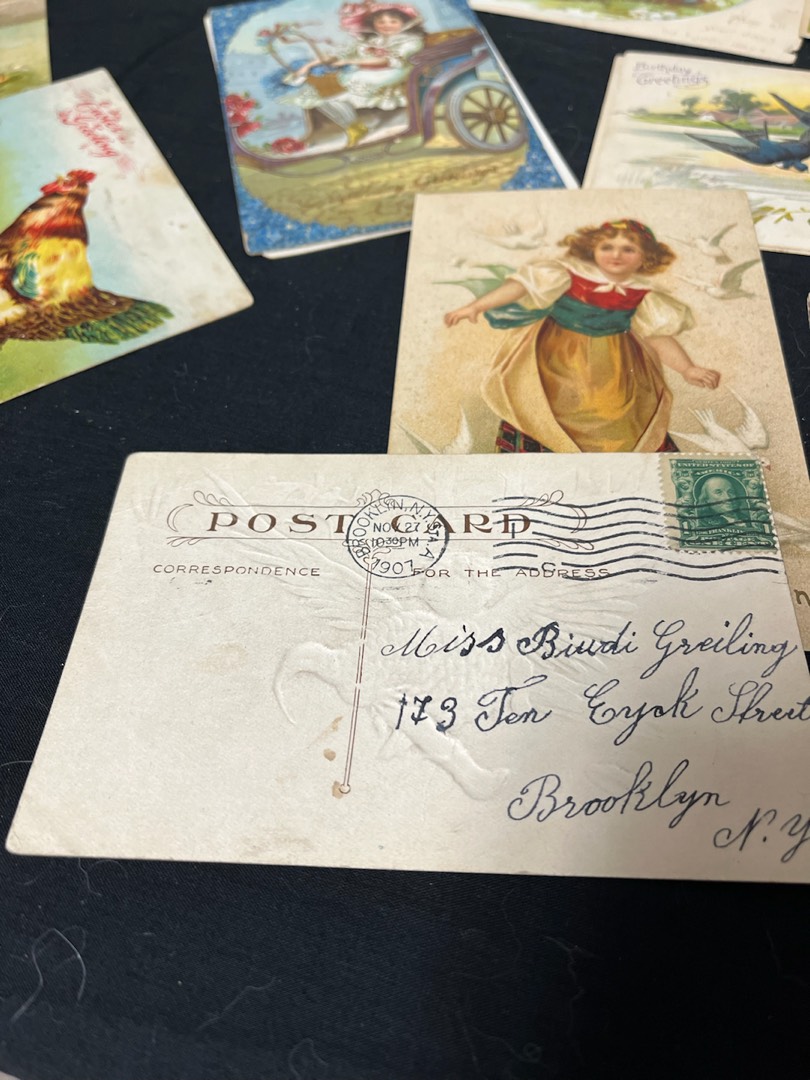 Birthday
Greetings
POST CARD
BROOKLYN, N.Y. STA. A.
NOV 27
10 30 PM
1907
C
UNITED STATES OF
CORRESPONDENCE
FOR THE ADDRESS
Miss Biudi Greiling
173 Ten Eyck Street
Brooklyn
N.Y